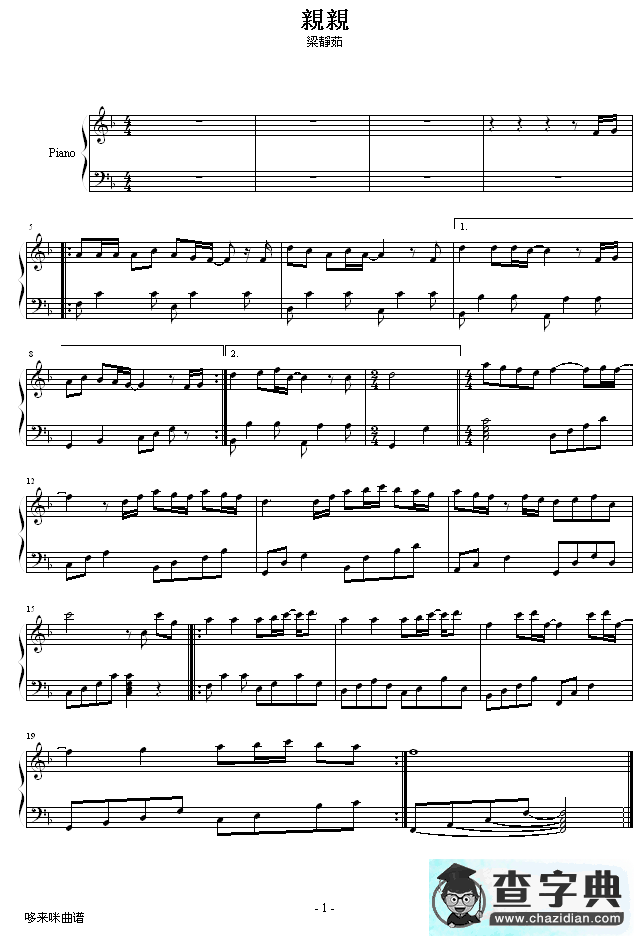 親親
梁靜茹
Piano
5
1.
8
2.
12
15
19
- 1 -
哆来咪曲谱
查字典
www.chazidian.com